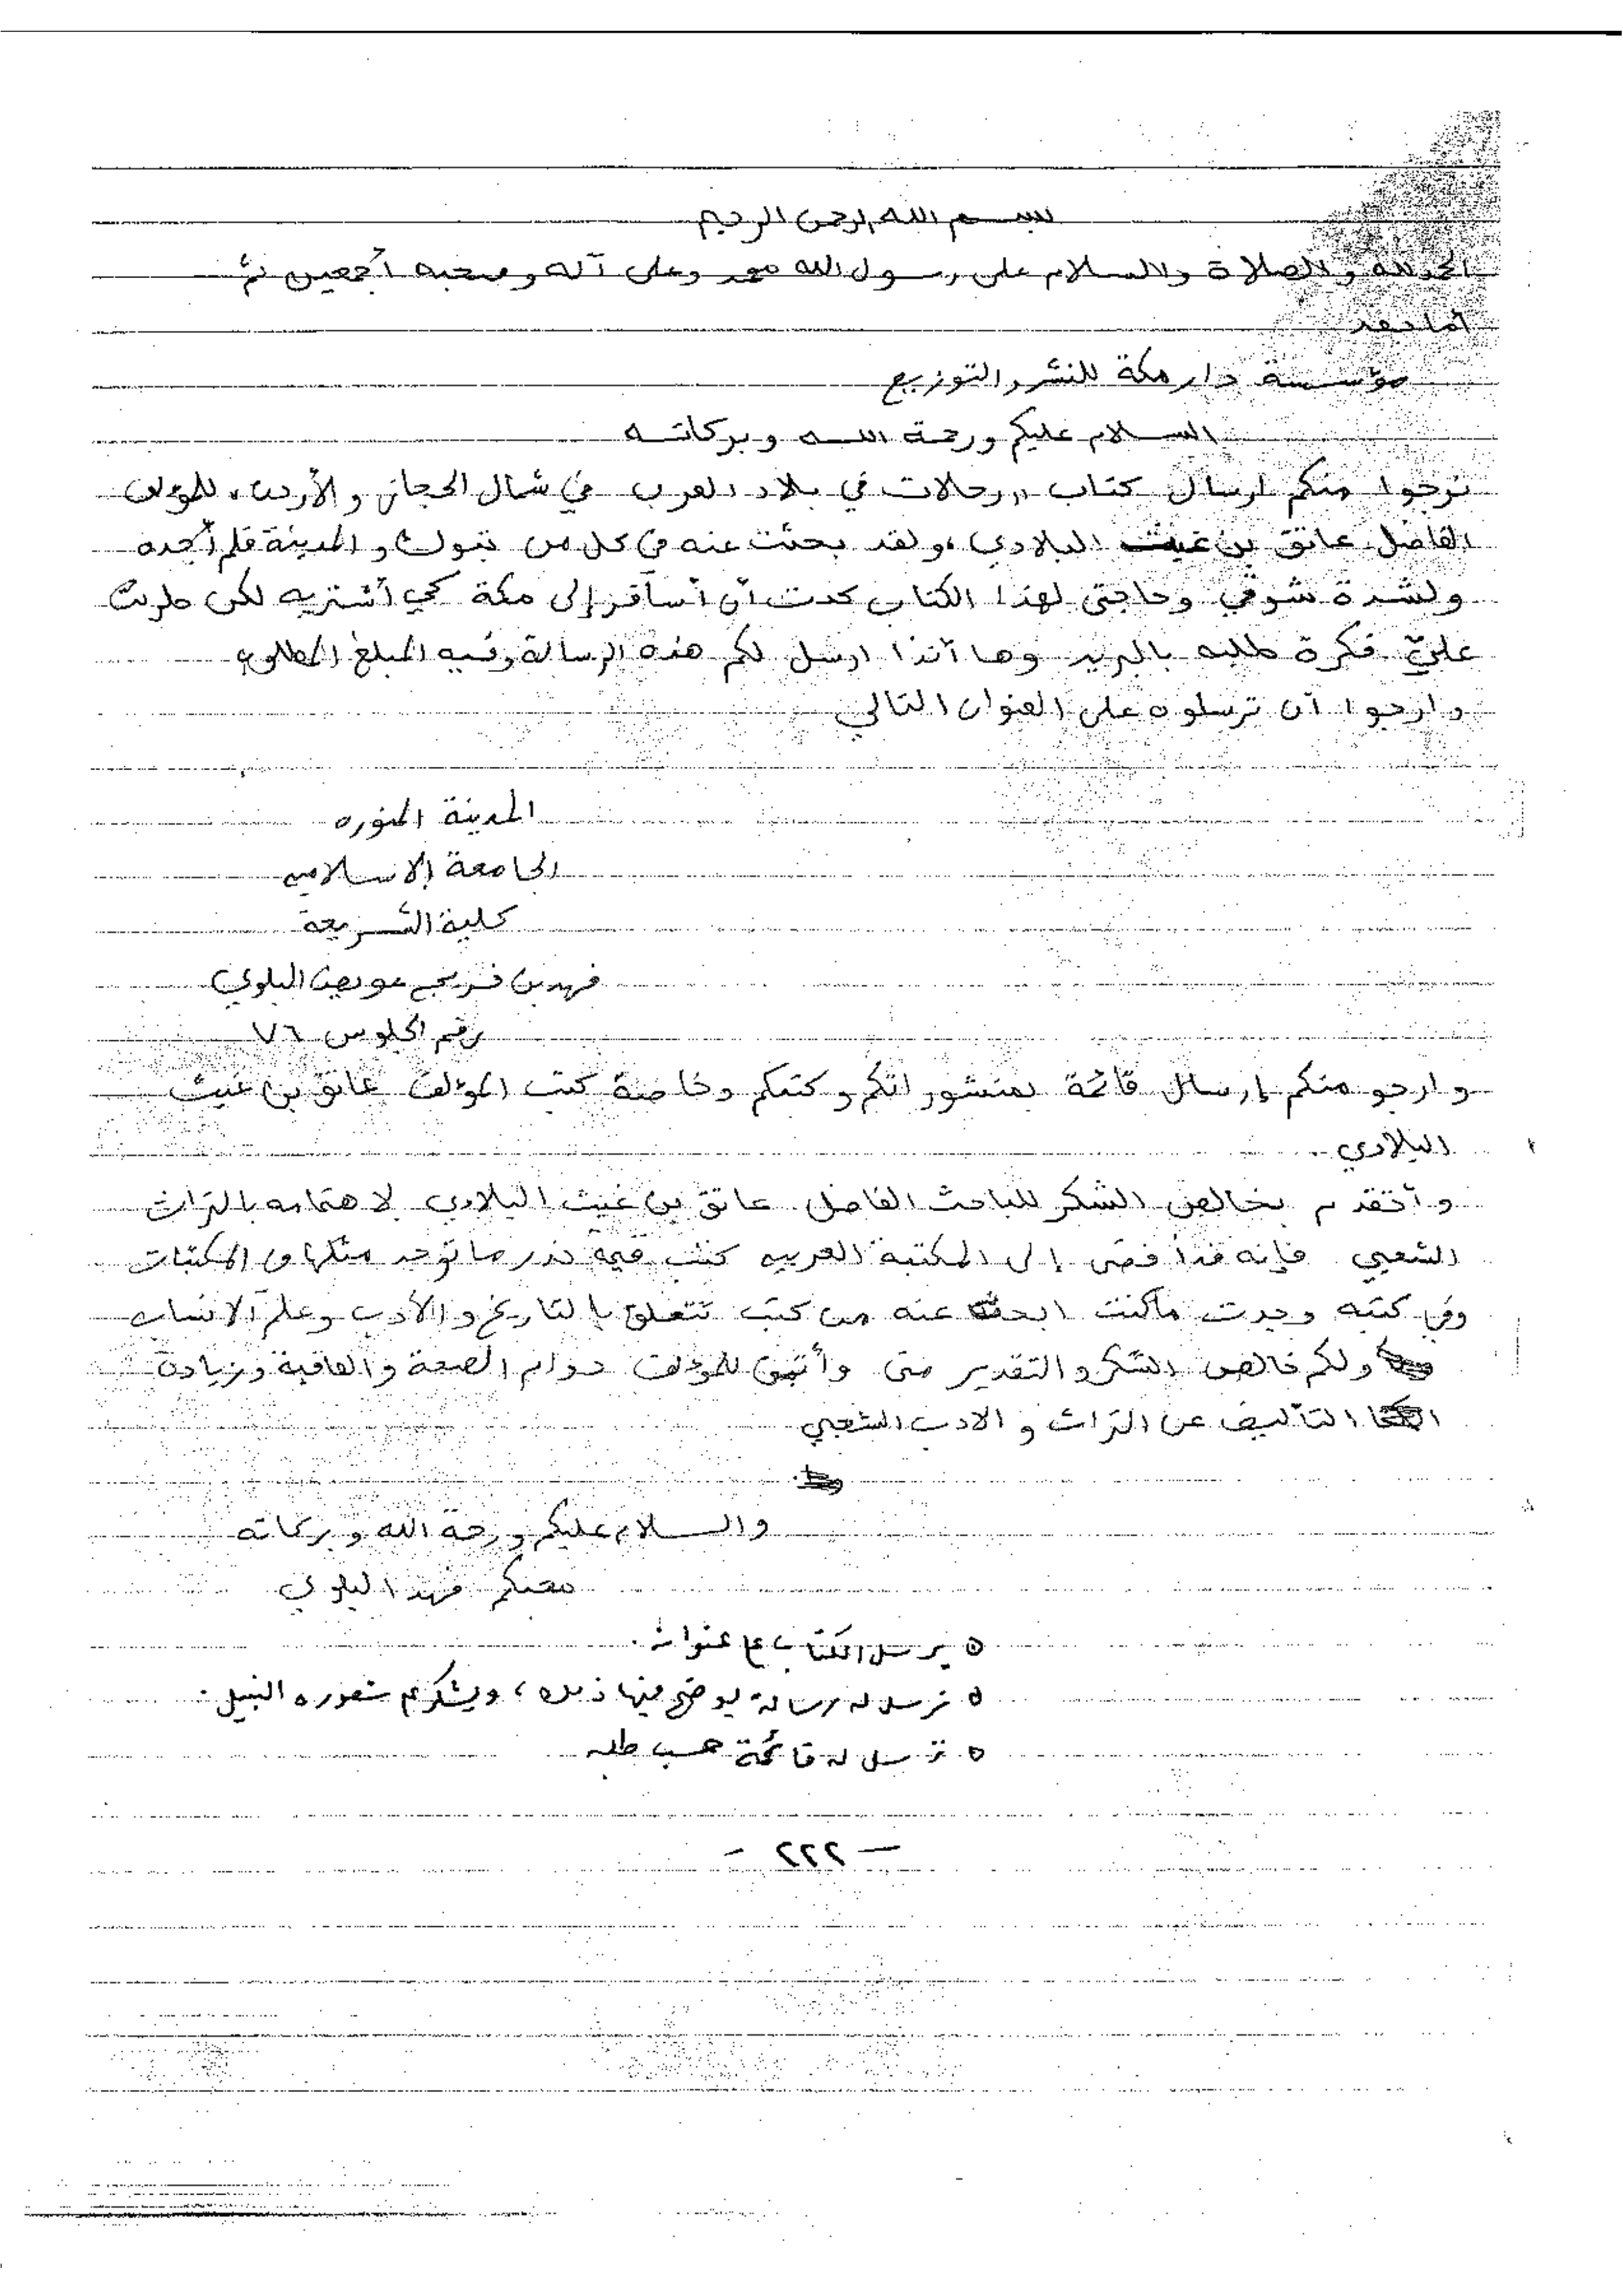 بسم الله الرحمن الرحيم
الحمد لله والصلاة والسلام على رسول الله محمد وعلى آله وصحبه أجمعين ثم
أما بعد
مؤسسة دار مكة للنشر والتوزيع
السلام عليكم ورحمة الله وبركاته
نرجوا منكم ارسال كتاب «رحلات في بلاد العرب في شمال الحجاز والأردن» للمؤلف
الفاضل عاتق بن غيث البلادي، ولقد بحثت عنه في كل من تبوك والمدينة فلم أجده
ولشدة شوقي وحاجتي لهذا الكتاب كدت أن أسافر إلى مكة كي أشتريه لكن طرئت
عليّ فكرة طلبه بالبريد وها أنذا ارسل لكم هذه الرسالة وفيه المبلغ المطلوب
وارجوا أن ترسلوه على العنوان التالي
المدينة المنوره
الجامعة الاسلاميه
كلية الشريعة
فهد بن فريج عويض البلوي
رقم الجلوس ٧٦
وارجو منكم إرسال قائمة بمنشوراتكم وكتبكم وخاصة كتب المؤلف عاتق بن غيث
البلادي
وأتقدم بخالص الشكر للباحث الفاضل عاتق بن غيث البلادي لاهتمامه بالتراث
الشعبي فإنه قد إلى المكتبة العربيه كتب قيمه ندر ما توجد مثلها في المكتبات
وفي كتبه وجدت ماكنت ابحث عنه من كتب تتعلق بالتاريخ والأدب وعلم الانساب
ولكم خالص الشكر والتقدير مني وأتمنى للمؤلف دوام الصحة والعافية وزيادة
التأليف عن التراث والادب الشعبي
والسلام عليكم ورحمة الله وبركاته
محبكم فهد البلوي
ه يرسل الكتاب ع عنوانه.
ه ترسل له رسالة يوضح فيها ذلك، ويشكر ع شعوره النبيل.
ه ترسل له قائمة حسب طلبه
- ٢٢٢ -